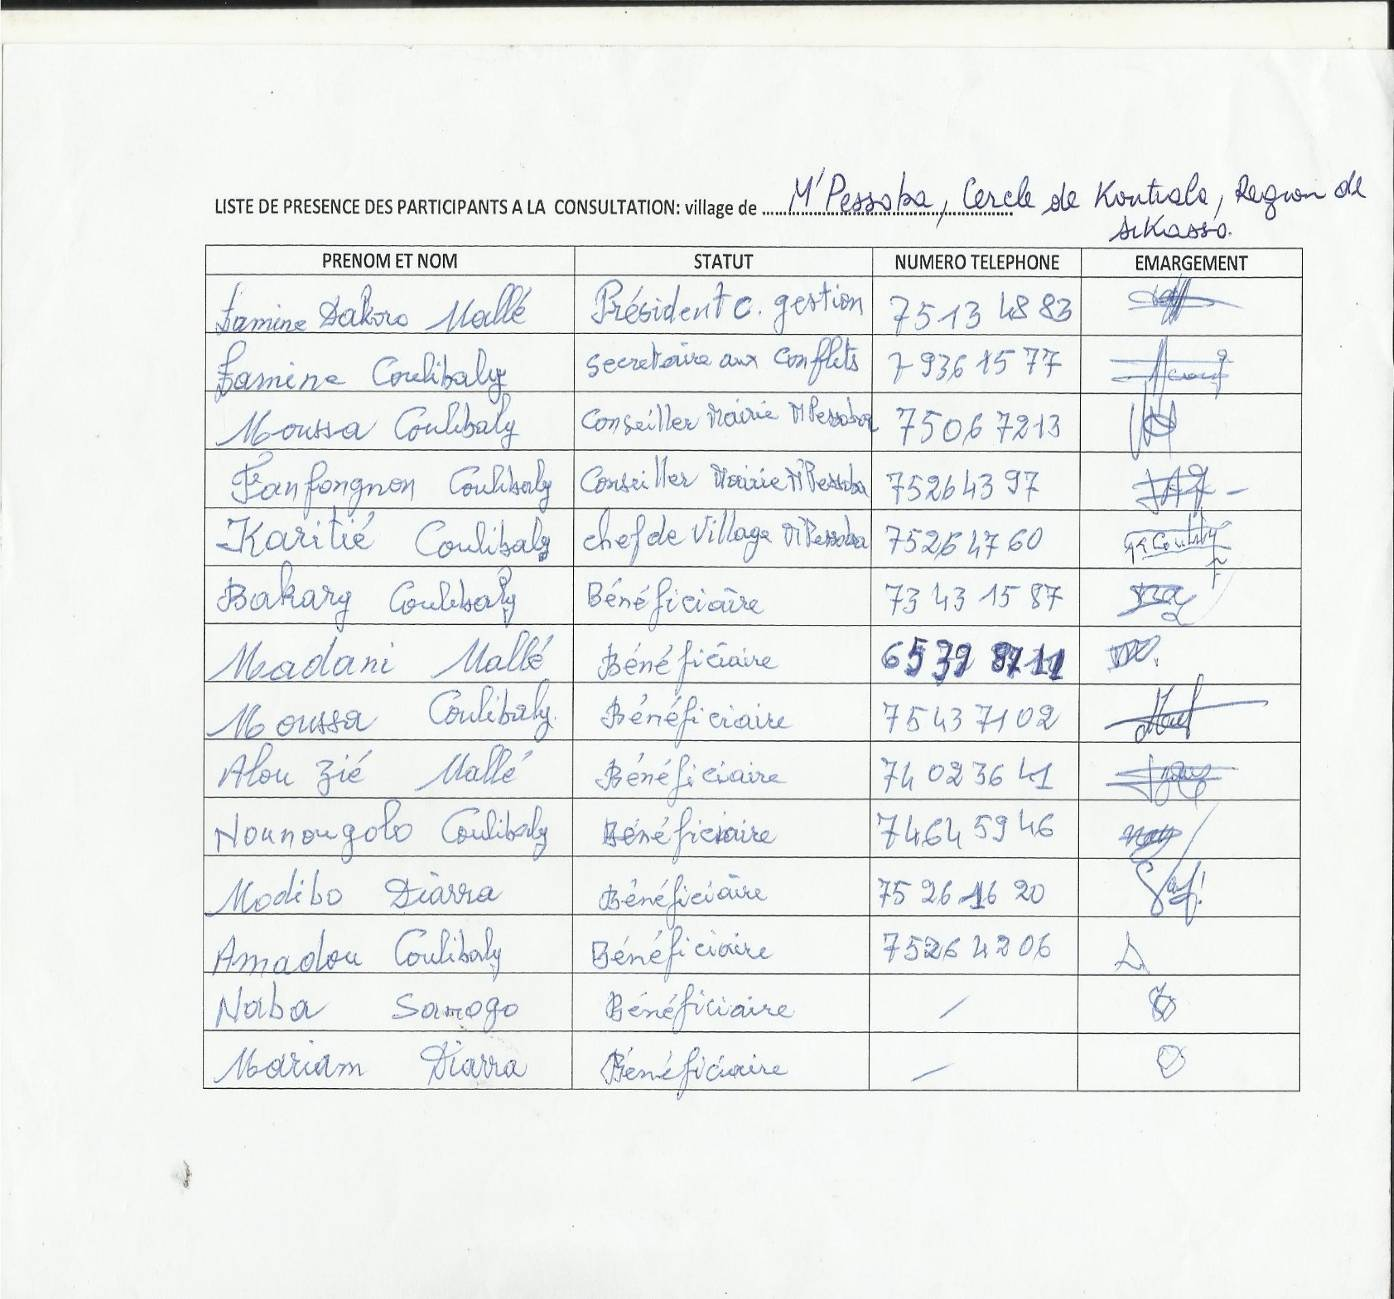 LISTE DE PRESENCE DES PARTICIPANTS A LA CONSULTATION: village de M'Pessoba, Cercle de Koutiala, Region de
Sikasso.
PRENOM ET NOM STATUT NUMERO TELEPHONE EMARGEMENT
Lamine Dakoro Mallé Président c. gestion 75 13 48 83
Lamine Coulibaly Secretaire aux conflits 7936 15 77
Moussa Coulibaly Conseiller Mairie M'Pessoba 7506 7213
Fanfongnon Coulibaly Conseiller Mairie M'Pessoba 7526 43 97
Karitié Coulibaly chef de village M'Pessoba 7526 47 60
Bakary Coulibaly Bénéficiaire 73 43 15 87
Madani Mallé Bénéficiaire
Moussa Coulibaly Bénéficiaire 7543 7102
Alou Zié Mallé Bénéficiaire 74 02 36 41
Nounougolo Coulibaly Bénéficiaire 7464 59 46
Modibo Diarra Bénéficiaire 75 26 16 20
Amadou Coulibaly Bénéficiaire 7526 4206
Naba Sanogo Bénéficiaire /
Mariam Diarra Bénéficiaire /